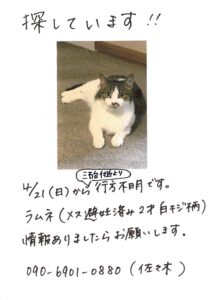 探しています!!
付近より
4/21(日)から行方不明です。
ラムネ(メス避妊済み2才白キジ柄)
情報ありましたらお願いします。
090-6901-0880(佐々木)